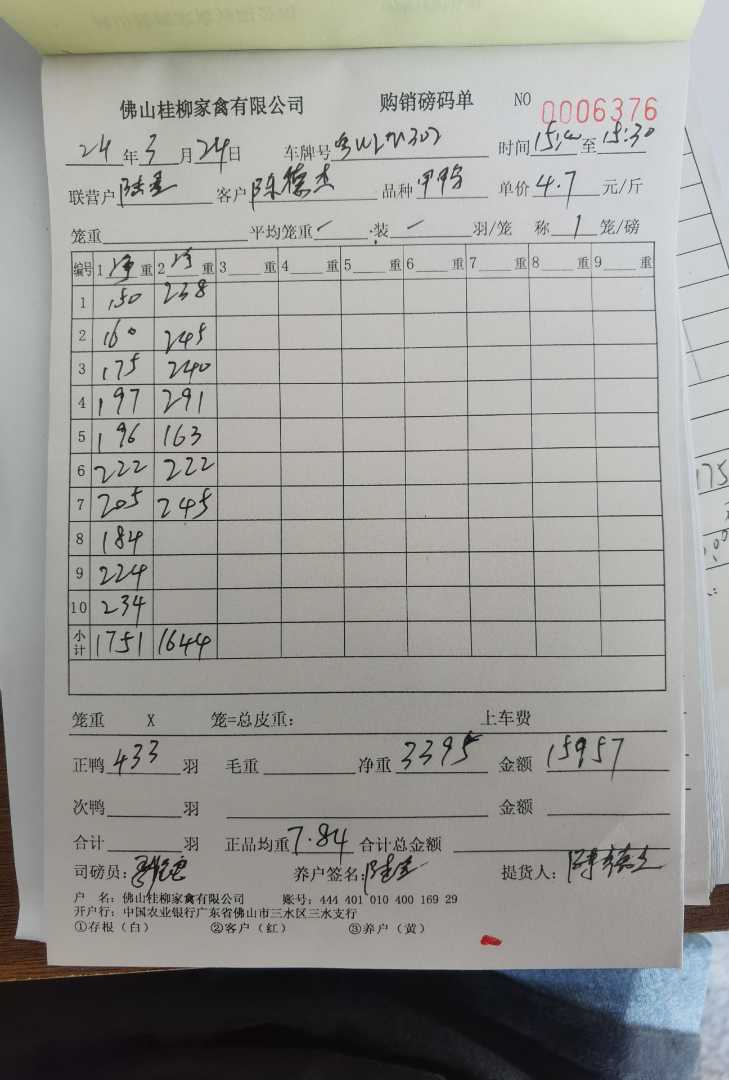 佛山桂柳家禽有限公司 购销磅码单 NO 0006376
24年3月24日 车牌号 时间 15: 至 15:30
联营户 客户 陈德杰 品种 单价 4.7 元/斤
笼重 平均笼重 一 装 一 羽/笼 称 1 笼/磅
编号 1 净 重 2 净 重 3 重 4 重 5 重 6 重 7 重 8 重 9 重
1 150 238
2 160 245
3 175 240
4 197 291
5 196 163
6 222 222
7 205 245
8 184
9 224
10 234
小计 1751 1644
笼重 X 笼=总皮重: 上车费
正鸭 433 羽 毛重 净重 3395 金额 15957
次鸭 羽 金额
合计 羽 正品均重 7.84 合计总金额
司磅员: 养户签名: 提货人:
户 名: 佛山桂柳家禽有限公司 账号: 444 401 010 400 169 29
开户行: 中国农业银行广东省佛山市三水区三水支行
①存根（白） ②客户（红） ③养户（黄）
175